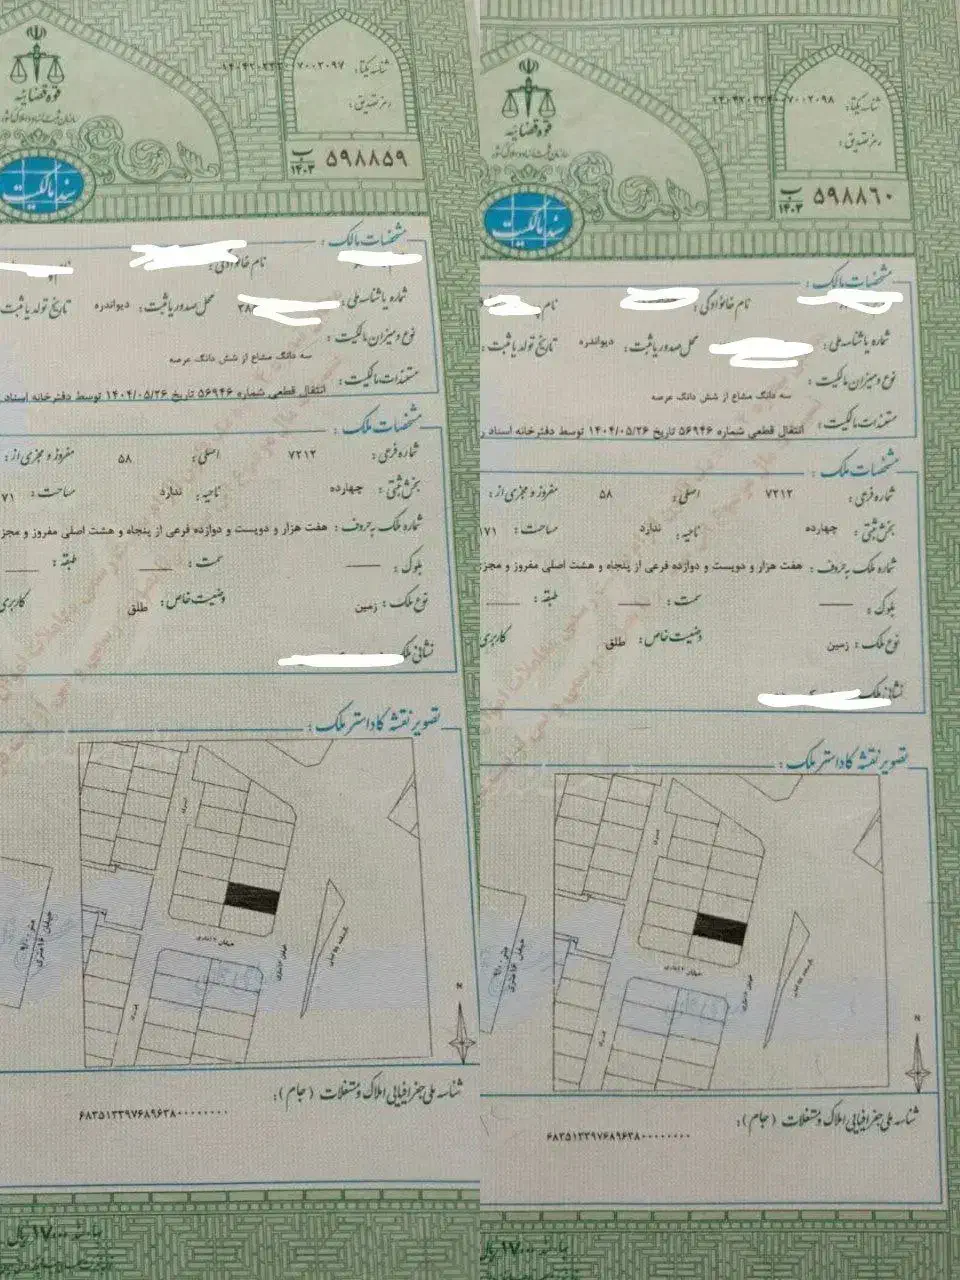 قوه قضائیه
سازمان ثبت اسناد و املاک کشور
سند مالکیت
شناسه یکتا: ۱۴۰۴۲۰۲۳۳۰۰۷۰۰۲۰۹۷
رمز تصدیق:
۵۹۸۸۵۹ ب ۱۴۰۳
مشخصات مالک:
نام خانوادگی:
شماره یا شناسه ملی: محل صدور یا ثبت: دیواندره تاریخ تولد یا ثبت
نوع و میزان مالکیت:
سه دانگ مشاع از شش دانگ عرصه
مستندات مالکیت:
انتقال قطعی شماره ۵۶۹۴۶ تاریخ ۱۴۰۴/۰۵/۲۶ توسط دفترخانه اسناد
مشخصات ملک:
شماره فرعی: ۷۲۱۲ اصلی: ۵۸ مفروز و مجزی از:
بخش ثبتی: چهارده ناحیه: ندارد مساحت: ۷۱
شماره ملک به حروف: هفت هزار و دویست و دوازده فرعی از پنجاه و هشت اصلی مفروز و مجز
بلوک: سمت: طبقه:
نوع ملک: زمین وضعیت خاص: طلق کاربری
نشانی ملک
تصویر نقشه کاداستر ملک:
N
شناسه ملی جغرافیایی املاک و مستغلات (جام):
۶۸۳۵۱۳۳۹۷۶۸۹۶۳۸۰۰۰۰۰۰۰۰۰
بهاء سند ۱۷۰۰۰۰ ریال
قوه قضائیه
سازمان ثبت اسناد و املاک کشور
سند مالکیت
شناسه یکتا: ۱۴۰۴۲۰۲۳۳۰۰۷۰۰۲۰۹۸
رمز تصدیق:
۵۹۸۸۶۰ ب ۱۴۰۳
مشخصات مالک:
نام خانوادگی: نام
شماره یا شناسه ملی: محل صدور یا ثبت: دیواندره تاریخ تولد یا ثبت:
نوع و میزان مالکیت:
سه دانگ مشاع از شش دانگ عرصه
مستندات مالکیت:
انتقال قطعی شماره ۵۶۹۴۶ تاریخ ۱۴۰۴/۰۵/۲۶ توسط دفترخانه اسناد ر
مشخصات ملک:
شماره فرعی: ۷۲۱۲ اصلی: ۵۸ مفروز و مجزی از:
بخش ثبتی: چهارده ناحیه: ندارد مساحت: ۱۷۱
شماره ملک به حروف: هفت هزار و دویست و دوازده فرعی از پنجاه و هشت اصلی مفروز و مجز
بلوک: سمت: طبقه:
نوع ملک: زمین وضعیت خاص: طلق کاربری
نشانی ملک
تصویر نقشه کاداستر ملک:
N
شناسه ملی جغرافیایی املاک و مستغلات (جام):
۶۸۳۵۱۳۳۹۷۶۸۹۶۳۸۰۰۰۰۰۰۰۰۰
بهاء سند ۱۷۰۰۰۰ ریال